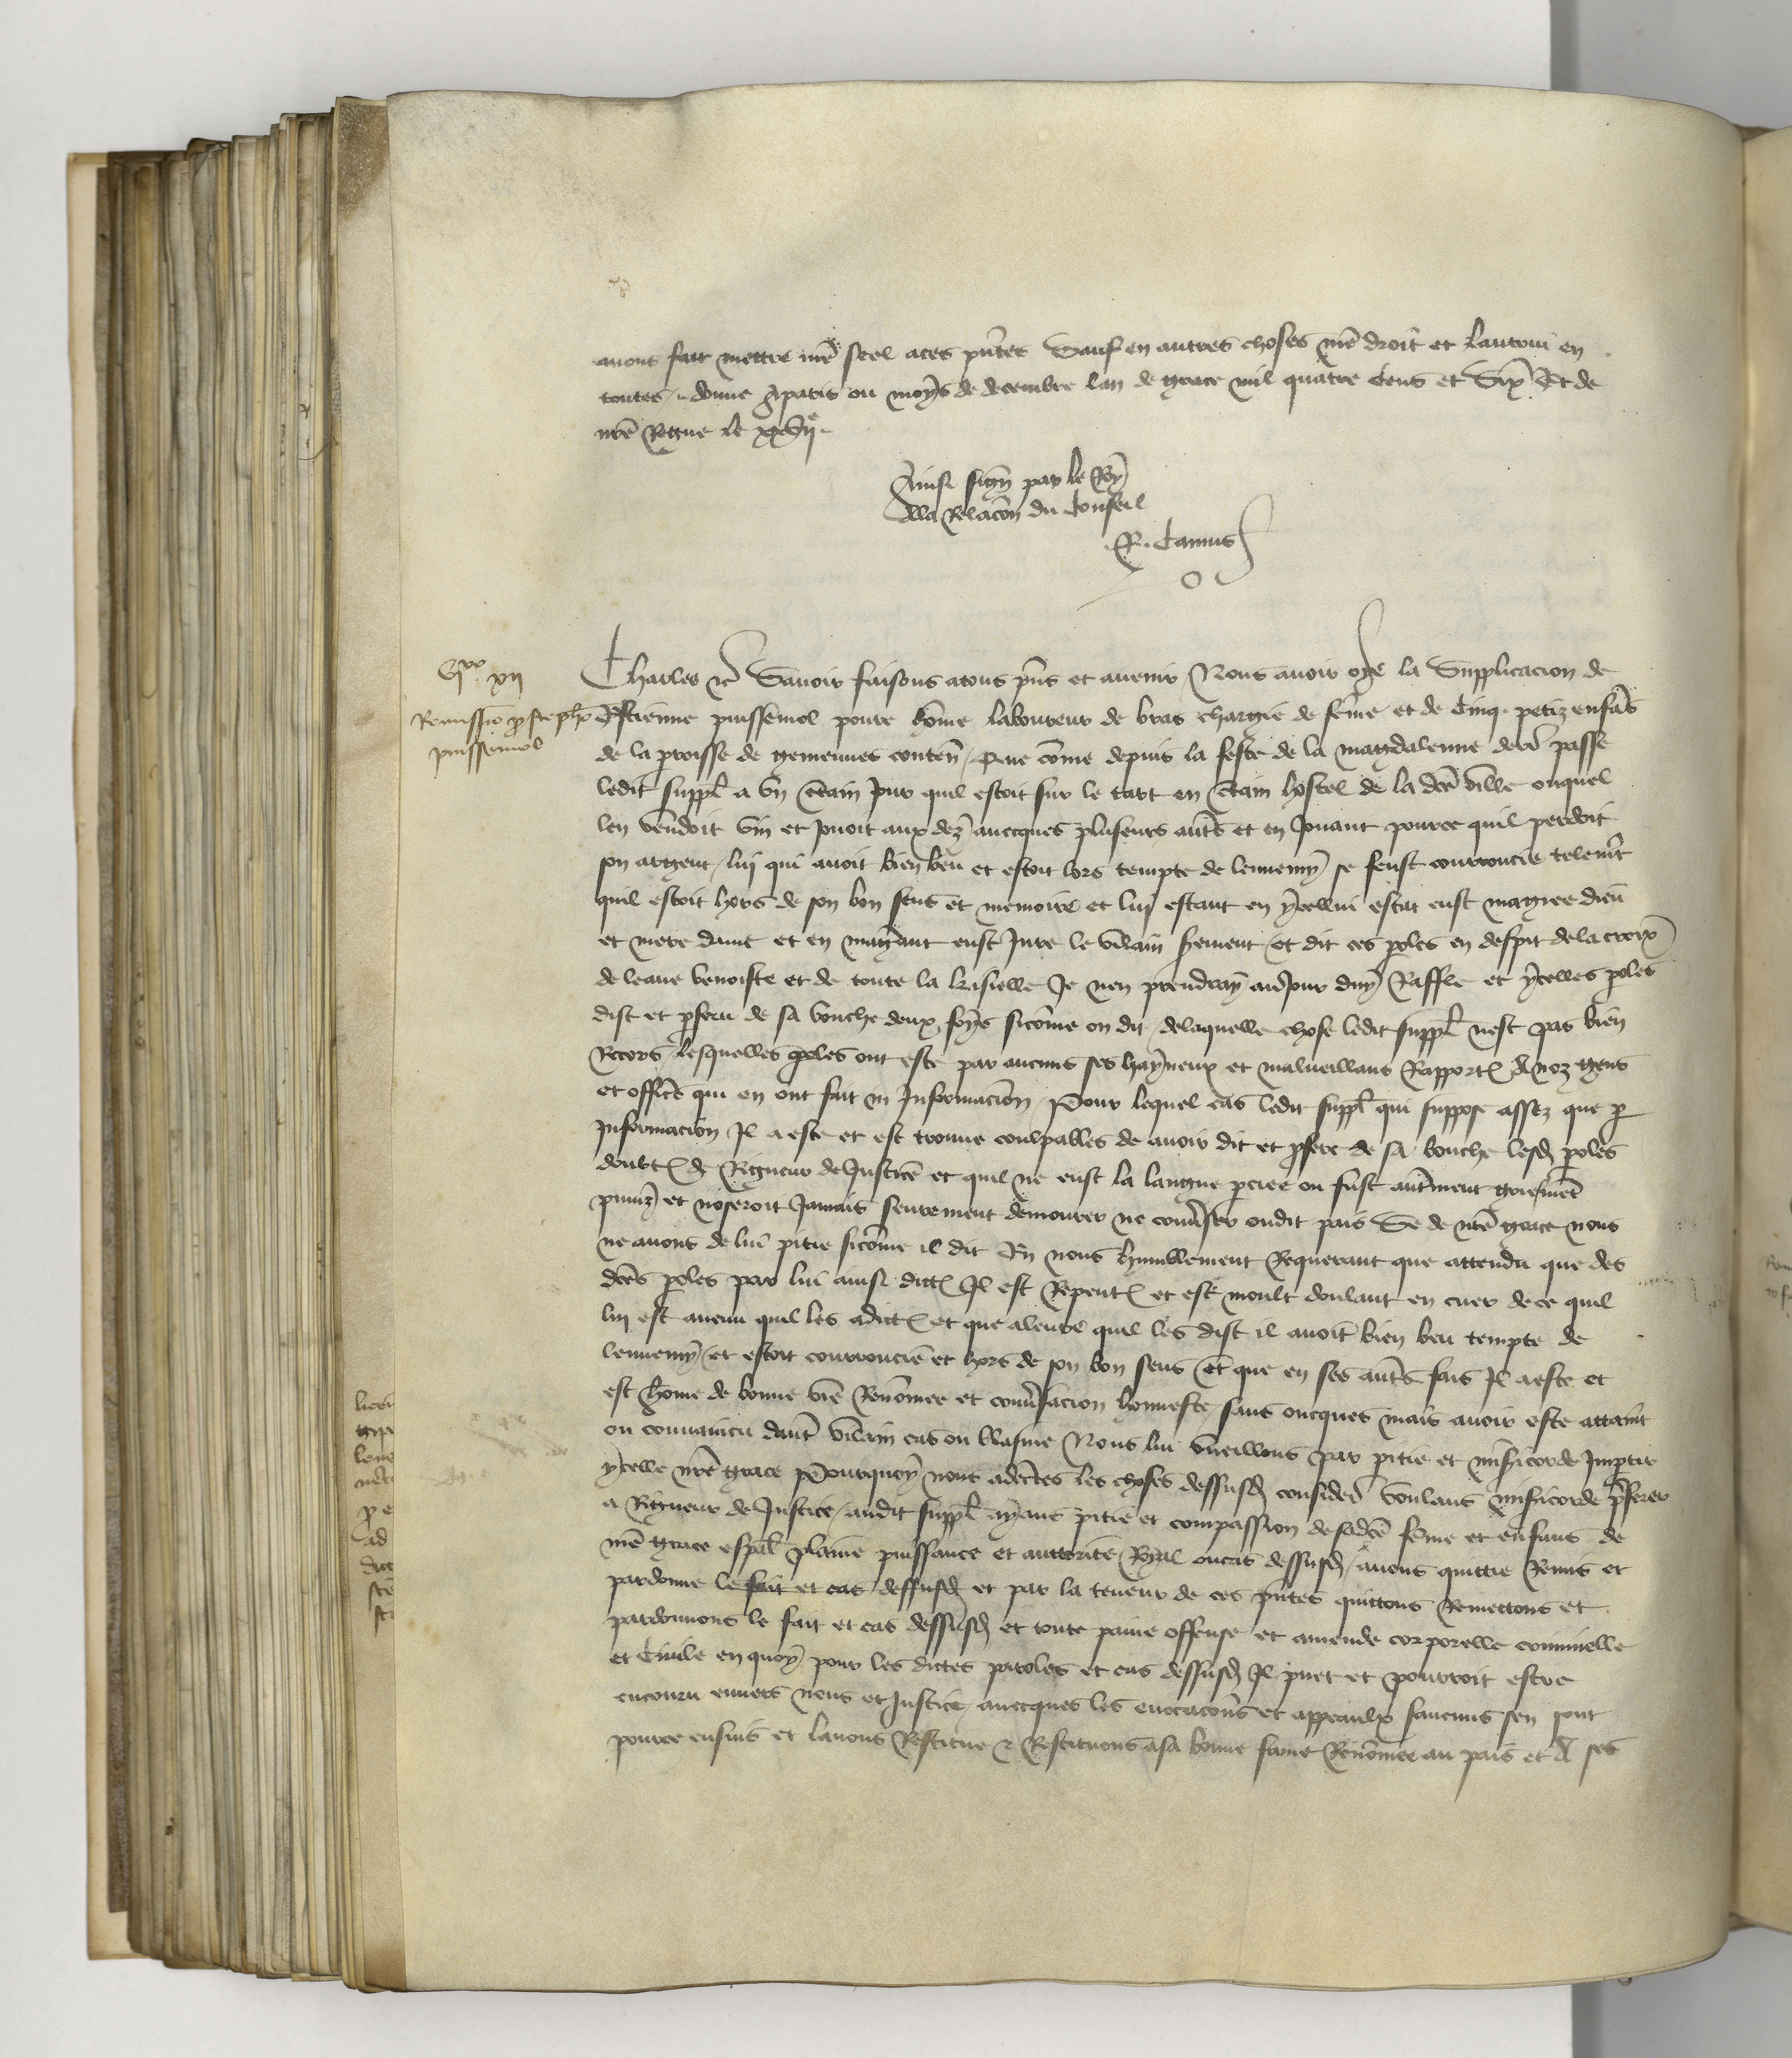 auons fait mettre nr̄e seel aces pn̄tes Sauf en autres choses nr̄e droit et lautrui en
toutes. donne a paris ou moys de decembre lan de grace mil quatre cens et Six Et de
nr̄e Regne le xxvije.
Ainsi sign̄ par le Roy
A la Relacōn du Conseil
.R. Camus
xij
Charles &c Sauoir faisons atous pn̄s et auenir Nous auoir oye la Supplicacion de
Remissio ꝓ steph̄o
puissemol
Estienne puissemol poure hōme laboureur de bras chargie de fēme et de Cinq petiz enfās
de la ꝑroisse de gemennes conten̄ / Que cōme depuis la feste de la magdalenne derr̄ passe
ledit suppl̄ a vn c̄tain Jour quil estoit sur le tart en c̄tain hostel de la dc̄e ville ouquel
len vendoit vin et Jouoit aux dez auecques pluseurs aut̄s et en Jouant pource quil perdoit
son argent / lui qui auoit bien beu et estoit lors tempte de lennemy se feust courroucie telemt̄
quil estoit hors de son bon sens et memoire et lui estant en ycellui estat eust maugree dieu
et mere dame et en maugreant eust Jure le vilain serement / et dit ces ꝑoles en despit de la croix
de leaue benoiste et de toute la Je nen prendray au Jour duy Raffle et ycelles ꝑoles
dist et ꝓfera de sa bouche deux foys sicōme on dit / delaquelle chose ledit suppl̄ nest pas bien
Recors lesquelles ꝑoles ont este par aucuns ses hayneux et malueillans Rapport̄ a noz gens
et offic̄s qui en ont fait Informacōn / Pour lequel cas ledit suppl̄ qui suppose assez que ꝑ
Informacion Il a este et est trouue coulpables de auoir dit et ꝓfere de sa bouche lesd̄ ꝑoles
doubt̄ Rigueur de Justice et quil ne eust la langue ꝑciee ou fust aut̄ment griefmēt
puniz et noseroit Jamais seurement demourer ne conūser oudit pais Se de nr̄e grace nous
ne auons de lui pitie sicōme il dit En nous humblement Requerant que attendu que des
dc̄es ꝑoles par lui ainsi dict̄ Il est Repent̄ et est moult doulant en cuer de ce quil
lui est auenu quil les a dict̄ et que aleure quil les dist il auoit bien beu tempte de
lennemy / et estoit courroucie et hors de son bon sens Et que en ses aut̄s fais Il a este et
est hōme de bonne vie Renōmee et conūsacion honneste sans oncques mais auoir este attaint
ou conuaincu daut̄ vilain cas ou blasme Nous lui vueillons par pitie et mis̄icorde Impartir
ycelle nr̄e grace Pourquoy nous adc̄tes les choses dessusd̄ consider̄ voulans mis̄icorde p̄ferer
a Rigueur de Justice / audit suppl̄ ayans pitie et compassion de sadc̄e fēme et enfans de
nr̄e grace esp̄al plaine puissance et auttorite Royal oucas dessusd̄ / auons quittie Remis et
pardonne le fait et cas dessusd̄ et par la teneur de ces pn̄tes quittons Remettons et
pardonnons le fait et cas dessusd̄ et toute paine offense et amende corporelle criminelle
et Ciuile en quoy pour les dictes paroles et cas dessusd̄ Il puet et pourroit estre
encouru enuers nous et Justice / auecques les euocacōns et appeaulx saucuns sen sont
pource ensuis et lauons Restitue & Restituons a sa bonne fame Renōmee au pais et A ses